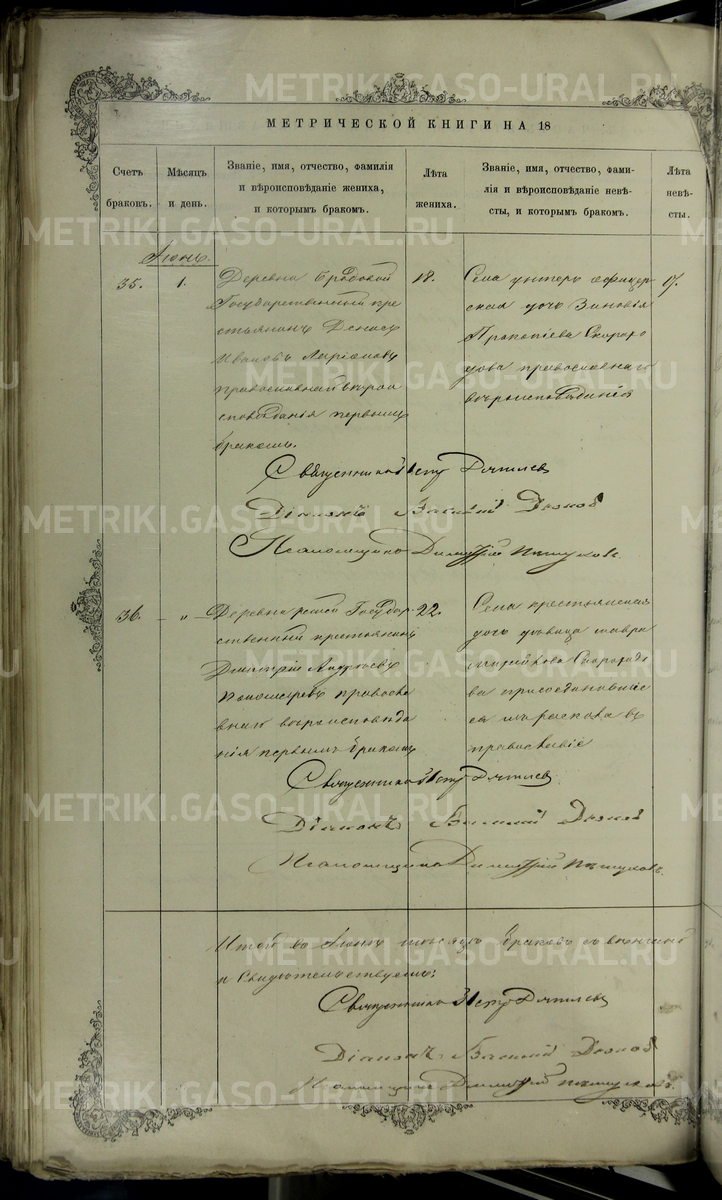 METRIKI.GASO-URAL.RU
МЕТРИЧЕСКОЙ КНИГИ НА 18
Счетъ браковъ.
Мѣсяцъ и день.
Званіе, имя, отчество, фамилія
и вѣроисповѣданіе жениха,
и которымъ бракомъ.
Лѣта жениха.
Званіе, имя, отчество, фами-
лія и вѣроисповѣданіе невѣ-
сты, и которымъ бракомъ.
Лѣта невѣ-
сты.
35.
1.
Деревни
Государственный кре
стьянинъ Денисъ
Ивановъ
православнаго вѣрои
сповѣданія первымъ
бракомъ.
18.
Села унтеръ офицер
ская дочь Зиновія
Прокопіева Скорохо
дова православнаго
вѣроисповѣданія
17.
Священникъ Петръ
Діаконъ Василій
Псаломщикъ Димитрій
36.
"
Деревни Государ
ственный крестьянинъ
Дмитрій Андреевъ
правосла
внаго вѣроисповѣда
нія первымъ бракомъ
22.
Села крестьянская
дочь дѣвица Мавра
Скороходо
ва присоединившая
ся изъ раскола въ
православіе
Священникъ Петръ
Діаконъ Василій
Псаломщикъ Димитрій
Итого въ мѣсяцѣ браковъ
и Свидѣтельствуемъ:
Священникъ Петръ
Діаконъ Василій
Псаломщикъ Димитрій